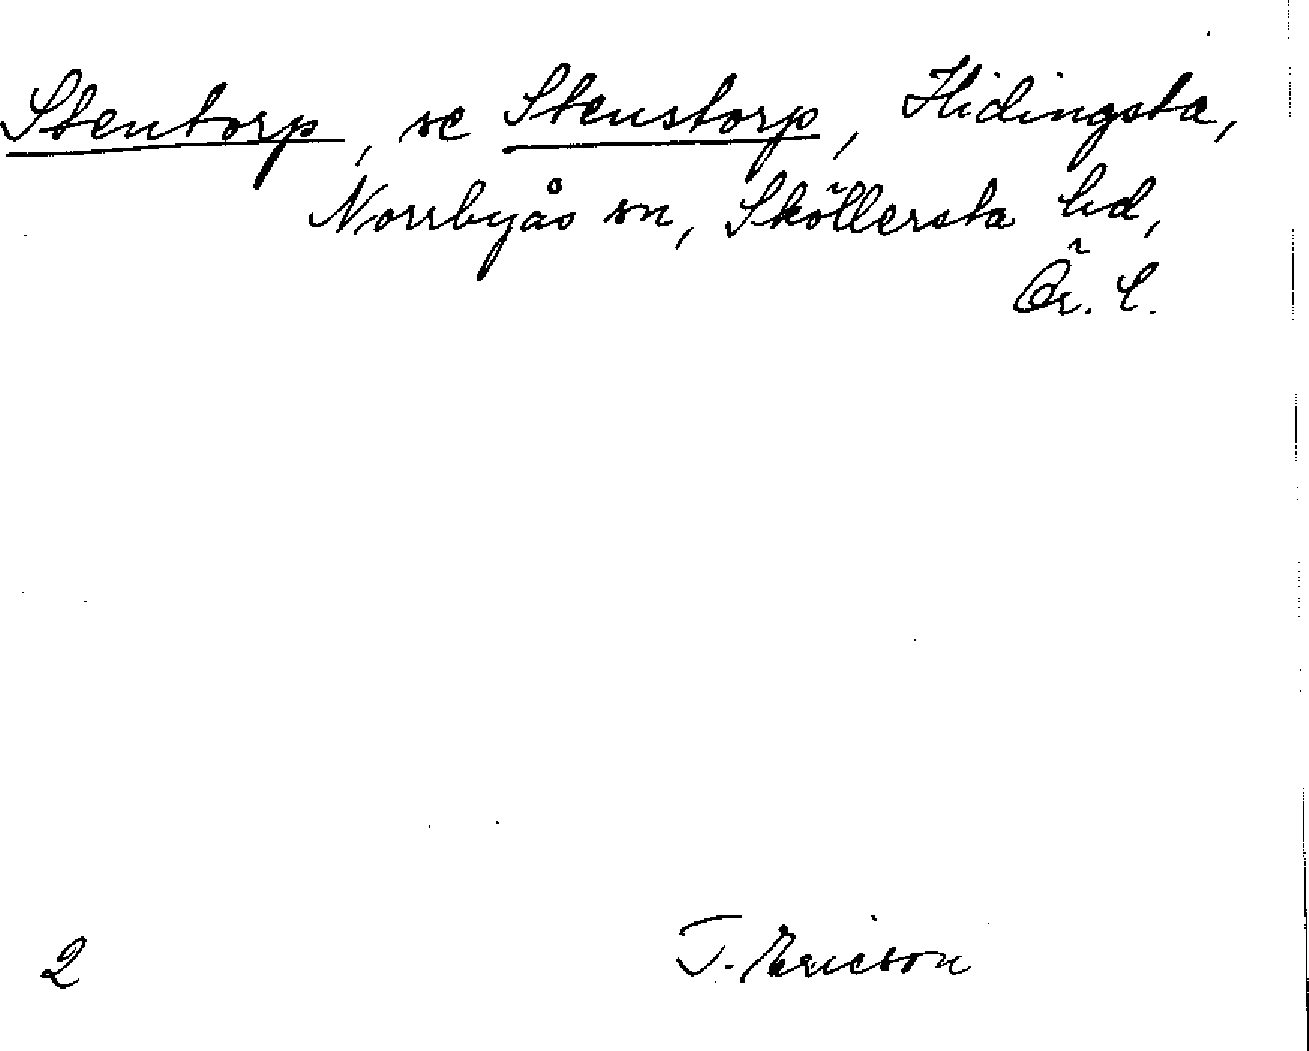 Stentorp, se Stenstorp, Hidingsta,
Norrbyås sn, Sköllersta hd,
Ör. l.
2
T. Ericson